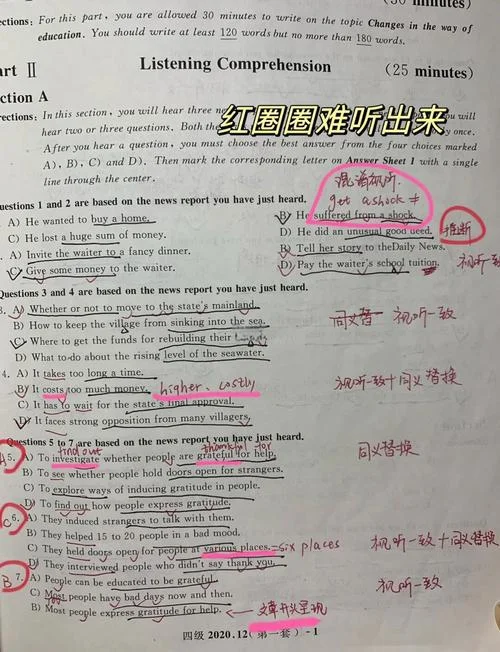 (30 minutes)
ections: For this part, you are allowed 30 minutes to write on the topic Changes in the way of
education. You should write at least 120 words but no more than 180 words.
art II Listening Comprehension (25 minutes)
ction A
红圈圈难听出来
rections: In this section, you will hear three ne
hear two or three questions. Both the y once.
After you hear a question, you must choose the best answer from the four choices marked
A), B), C) and D). Then mark the corresponding letter on Answer Sheet 1 with a single
line through the center.
混淆视听
get a shock ≠
uestions 1 and 2 are based on the news report you have just heard.
A) He wanted to buy a home. B) He suffered from a shock.
C) He lost a huge sum of money. D) He did an unusual good deed. 推断
A) Invite the waiter to a fancy dinner. B) Tell her story to theDaily News.
C) Give some money to the waiter. D) Pay the waiter's school tuition. 视听一致
Questions 3 and 4 are based on the news report you have just heard.
3. A) Whether or not to move to the state's mainland. 同义替 视听一致
B) How to keep the village from sinking into the sea.
C) Where to get the funds for rebuilding their
D) What to do about the rising level of the seawater.
4. A) It takes too long a time.
B) It costs too much money. higher、costly 视听一致+同义替换
C) It has to wait for the state's final approval.
D) It faces strong opposition from many villagers.
Questions 5 to 7 are based on the news report you have just heard.
find out thankful for
A 5. A) To investigate whether people are grateful for help. 同义替换
B) To see whether people hold doors open for strangers.
C) To explore ways of inducing gratitude in people.
D) To find out how people express gratitude.
C 6. A) They induced strangers to talk with them.
B) They helped 15 to 20 people in a bad mood.
C) They held doors open for people at various places. =six places 视听一致+同义替换
D) They interviewed people who didn't say thank you.
B 7. A) People can be educated to be grateful. 视听一致
C) Most people have bad days now and then.
B) Most people express gratitude for help. ← 文章开头呈现
四级 2020.12(第一套)-1